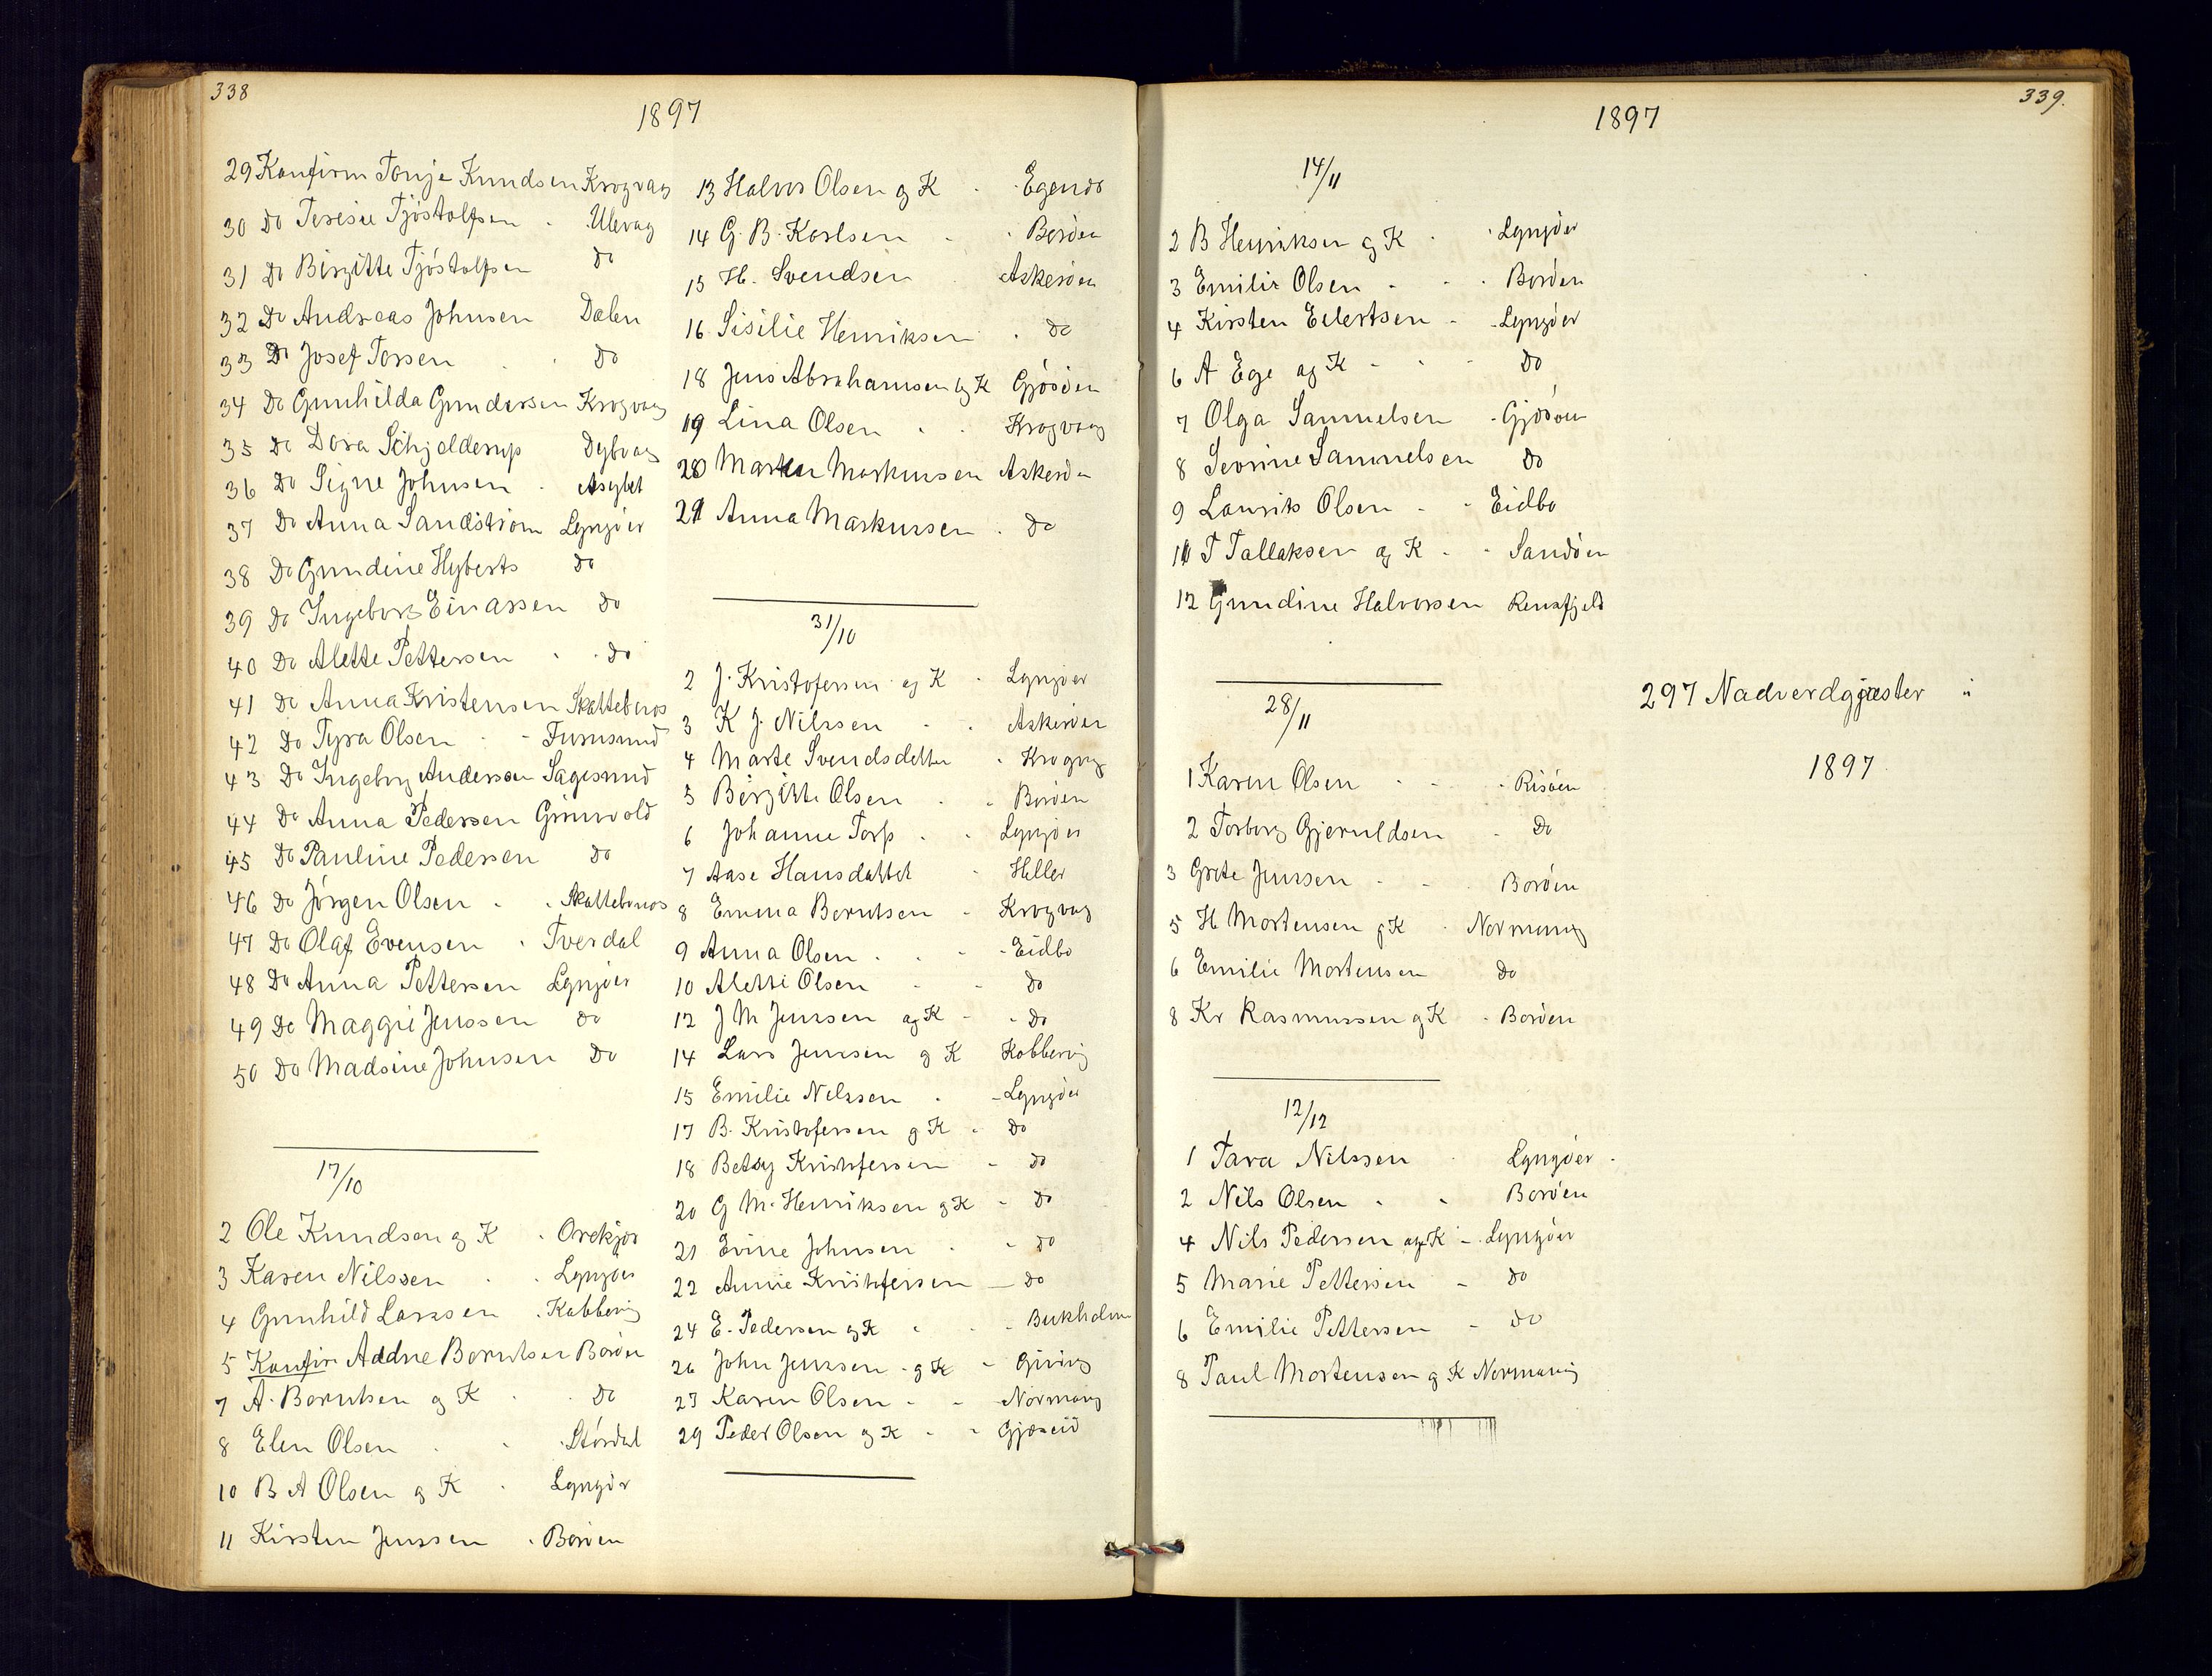 338
1897
29 Konfirm Tonje Knudsen Krogvag
30 Do Teresie Tjøstolfsen Ulevag
31 Do Birgitte Tjøstolfsen do
32 Do Andreas Johnsen Dalen
33 Do Josef Terssen do
34 Do Gunhilda Gundersen Krogvag
35 Do Dora Schjelderup Dybvag
36 Do Signe Johnsen Asylet
37 Do Anna Sandstrøm Lyngøer
38 Do Gundine Hyberts do
39 Do Ingeborg Einarssen do
40 Do Alette Pettersen do
41 Do Anna Kristensen Skattebenos
42 Do Tyra Olsen Furusund
43 Do Ingeborg Anderssen Sagesund
44 Do Anna Pedersen Grimvold
45 Do Pauline Pedersen do
46 Do Jørgen Olsen Skattebonos
47 Do Olaf Evensen Tverdal
48 Do Anna Pettersen Lyngøer
49 Do Maggie Jenssen do
50 Do Madsine Johnsen Do
17/10
2 Ole Knudsen og K Orekjær
3 Karen Nilssen Lyngøer
4 Gunhild Larssen Kabbervig
5 Konfir Addne Berntsen Borøen
7 A. Berntsen og K Do
8 Elen Olsen Størdal
10 B A Olsen og K Lyngør
11 Kirsten Jenssen Borøen
13 Halvor Olsen og K Egendo
14 G. B. Karlsen Borøen
15 H. Svendsen Askerøen
16 Sisilie Henriksen do
18 Jens Abrahamsen og K Gjøsøen
19 Lina Olsen Krogvag
20 Marken Markussen Askerøen
21 Anna Markussen do
31/10
2 J. Kristofersen og K Lyngøer
3 K J. Nilssen Askerøen
4 Marte Svendsdetter Krogvag
5 Birgitte Olsen Borøen
6 Johanne Torp Lyngøer
7 Aase Hansdattet Heller
8 Emma Berntsen Krogvag
9 Anna Olsen Eidbo
10 Alette Olsen do
12 J M Jenssen og K Do
14 Lars Jenssen og K Kobbervig
15 Emilie Nilssen Lyngøer
17 B. Kristofersen og K Do
18 Betsy Kristofersen do
20 G M. Henriksen og K do
21 Evine Johnsen do
22 Annie Kristofersen do
24 E. Pedersen og K Bukholm
26 John Jenssen og K Giving
27 Karen Olsen Normang
29 Peder Olsen og K Gjæseid
339.
1897
14/11
2 B Henriksen og K Lyngøer
3 Emilie Olsen Borøen
4 Kirsten Eilertsen Lyngøer
6 A Ege og K Do
7 Olga Samuelsen Gjøsøen
8 Severine Samuelsen Do
9 Laurits Olsen Eidbo
11 T Tallaksen og K Sandøen
12 Gundine Halvorsen Rensfjeld
28/11
1 Karen Olsen Risøen
2 Torborg Gjeruldsen Do
3 Grete Jenssen Borøen
5 H Mortensen og K Normanvig
6 Emilie Mortensen Do
8 Kr Rasmussen og K Borøen
12/12
1 Tara Nilssen Lyngøer
2 Nils Olsen Borøen
4 Nils Pedersen og K Lyngøer
5 Marie Pettersen do
6 Emilie Pettersen do
8 Paul Mortensen og K Normanvig
297 Nadverdgjæster i
1897